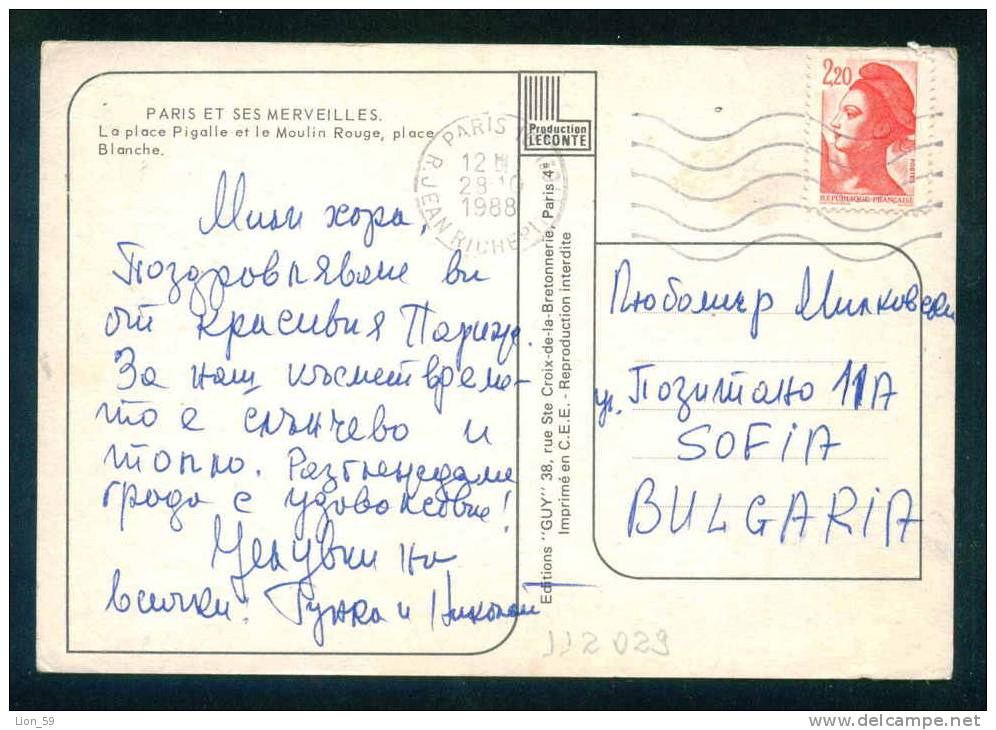 PARIS ET SES MERVEILLES.
La place Pigalle et le Moulin Rouge, place
Blanche.
Мили хора,
Поздравляваме ви
от красивия Париж.
За наш късмет време-
то е слънчево и
топло. Разглеждаме
града с удоволствие!
Целувки на
всички: Гунка и Николай
Production
LECONTE
PARIS
12 H
29 10
1988
R. JEAN RICHEPIN
Editions "GUY" 38, rue Ste Croix-de-la-Bretonnerie, Paris 4e
Imprimé en C.E.E. - Reproduction interdite
2,20
POSTES
REPUBLIQUE FRANÇAISE
Любомир Милковски
ул. Позитано 11А
SOFiA
BULGARiA
112 029
Lion_59
http://www.delcampe.net